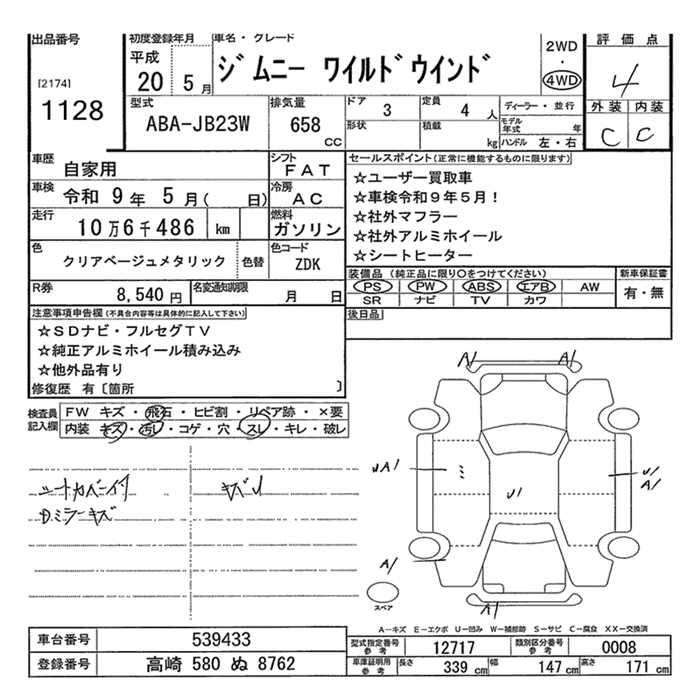 出品番号
[2174]
1128
初度登録年月
平成
20 5月
車名・グレード
ジムニー ワイルドウインド
2WD
・
4WD
評価点
4
外装 内装
C C
型式
ABA-JB23W
排気量
658
CC
ドア
3
定員
4 人
形状
積載
kg
ディーラー・並行
モデル年式 年
ハンドル 左・右
車歴
自家用
シフト
FAT
車検
令和 9年 5月( 日)
冷房
AC
走行
10万6千486 km
燃料
ガソリン
色
クリアベージュメタリック
色替
色コード
ZDK
R券
8,540 円
名変通知期限
月 日
セールスポイント(正常に機能するものに限ります)
☆ユーザー買取車
☆車検令和9年5月!
☆社外マフラー
☆社外アルミホイール
☆シートヒーター
装備品(純正品に限り○をつけてください)
PS PW ABS エアB AW
SR ナビ TV カワ
新車保証書
有・無
後日品
注意事項申告欄(不具合内容等は具体的に記入して下さい)
☆SDナビ・フルセグTV
☆純正アルミホイール積み込み
☆他外品有り
修復歴 有〔箇所 〕
検査員記入欄
FW キズ・飛石・ヒビ割・リペア跡・×要
内装 キズ・汚れ・コゲ・穴・スレ・キレ・破レ
シートカバー付
Dミラーキズ
A1 A1
UA1
U1
U1
A1
A1
A1
スペア
A−キズ E−エクボ U−凹み W−補修跡 S−サビ C−腐食 XX−交換済
車台番号
539433
登録番号
高崎 580 ぬ 8762
型式指定番号 参考
12717
類別区分番号 参考
0008
車庫証明用 参考
長さ 339 cm
幅 147 cm
高さ 171 cm